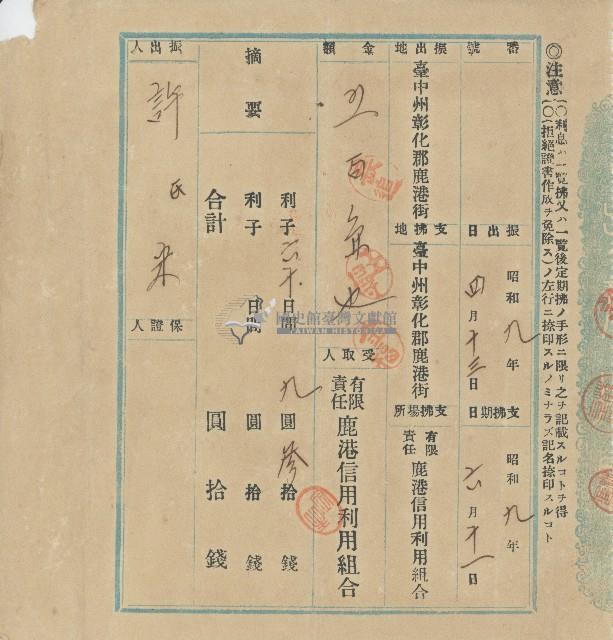 ◎注意
(一)利息ハ一覽拂又ハ一覽後定期拂ノ手形ニ限リ之ヲ記載スルコトヲ得
(二)(拒絕證書作成ヲ免除ス)ノ左行ニ捺印スルノミナラズ記名捺印スルコト
番號
振出日
昭和九年
四月十三日
支拂期日
昭和九年
六月十一日
振出地
臺中州彰化郡鹿港街
支拂地
臺中州彰化郡鹿港街
支拂場所
有限責任鹿港信用利用組合
金額
五百
也
受取人
有限責任鹿港信用利用組合
摘要
利子六十日間
九圓參拾錢
利子
日間
圓拾錢
合計
圓拾錢
振出人
許氏
保證人
國史館臺灣文獻館
TAIWAN HISTORICA